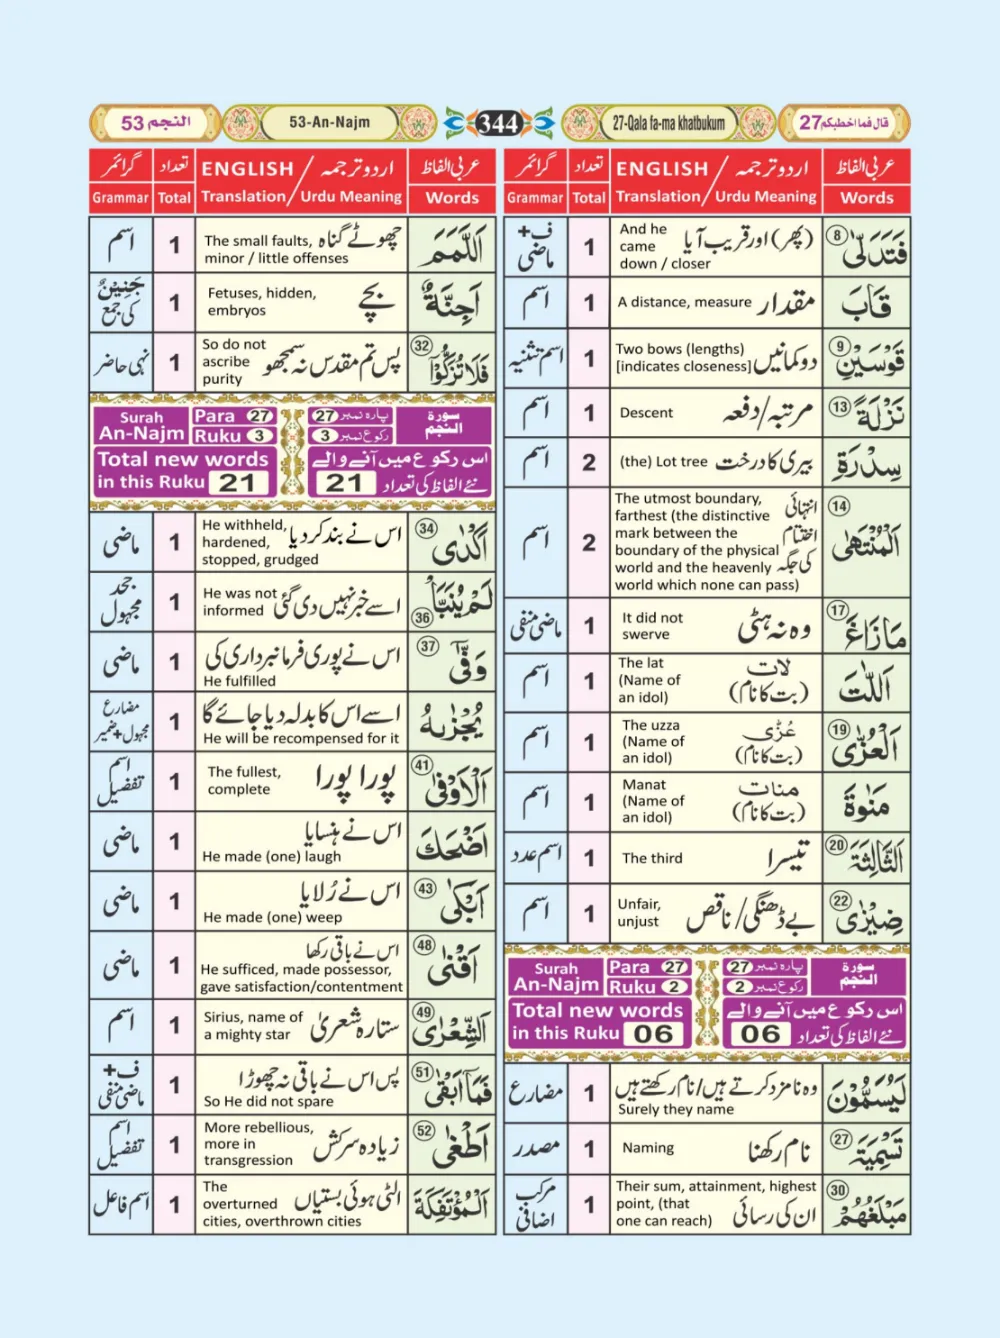 النجم 53
53-An-Najm
344
27-Qala fa-ma khatbukum
قال فما اخطبکم 27
عربی الفاظ اردو ترجمہ / ENGLISH تعداد گرائمر
Words Urdu Meaning / Translation Total Grammar
فَتَدَلّٰىۙ 8 (پھر) اور قریب آیا And he came down / closer 1 ف+ ماضی
قَابَ مقدار A distance, measure 1 اسم
قَوْسَيْنِ 9 دو کمانیں Two bows (lengths) [indicates closeness] 1 اسم تثنیہ
نَزْلَةً 13 مرتبہ/دفعہ Descent 1 اسم
سِدْرَةِ بیری کا درخت (the) Lot tree 2 اسم
الْمُنْتَهٰى 14 انتہائی اختتام کی جگہ The utmost boundary, farthest (the distinctive mark between the boundary of the physical world and the heavenly world which none can pass) 2 اسم
مَا زَاغَ 17 وہ نہ ہٹی It did not swerve 1 ماضی منفی
اللّٰتَ لات (بت کا نام) The lat (Name of an idol) 1 اسم
الْعُزّٰى 19 عُزّٰی (بت کا نام) The uzza (Name of an idol) 1 اسم
مَنٰوةَ منات (بت کا نام) Manat (Name of an idol) 1 اسم
الثَّالِثَةَ 20 تیسرا The third 1 اسم عدد
ضِيْزٰى 22 بے ڈھنگی/ناقص Unfair, unjust 1 اسم
Surah An-Najm Para 27 Ruku 2
سورۃ النجم پارہ نمبر 27 رکوع نمبر 2
Total new words in this Ruku 06
اس رکوع میں آنے والے نئے الفاظ کی تعداد 06
لَيُسَمُّوْنَ وہ نامزد کرتے ہیں/نام رکھتے ہیں Surely they name 1 مضارع
تَسْمِيَةَ 27 نام رکھنا Naming 1 مصدر
مَبْلَغُهُمْ 30 ان کی رسائی Their sum, attainment, highest point, (that one can reach) 1 مرکب اضافی
عربی الفاظ اردو ترجمہ / ENGLISH تعداد گرائمر
Words Urdu Meaning / Translation Total Grammar
اللَّمَمَ چھوٹے گناہ The small faults, minor / little offenses 1 اسم
اَجِنَّةٌ بچے Fetuses, hidden, embryos 1 جَنِیْنٌ کی جمع
فَلَا تُزَكُّوْۤا 32 پس تم مقدس نہ سمجھو So do not ascribe purity 1 نہی حاضر
Surah An-Najm Para 27 Ruku 3
سورۃ النجم پارہ نمبر 27 رکوع نمبر 3
Total new words in this Ruku 21
اس رکوع میں آنے والے نئے الفاظ کی تعداد 21
اَكْدٰى 34 اس نے بند کر دیا He withheld, hardened, stopped, grudged 1 ماضی
لَمْ يُنَبَّاْ 36 اسے خبر نہیں دی گئی He was not informed 1 جحد مجہول
وَفّٰۤى 37 اس نے پوری فرمانبرداری کی He fulfilled 1 ماضی
يُجْزٰىهُ اسے اس کا بدلہ دیا جائے گا He will be recompensed for it 1 مضارع مجہول+ضمیر
الْاَوْفٰى 41 پورا پورا The fullest, complete 1 اسم تفضیل
اَضْحَكَ اس نے ہنسایا He made (one) laugh 1 ماضی
اَبْكٰى 43 اس نے رُلایا He made (one) weep 1 ماضی
اَقْنٰى 48 اس نے باقی رکھا He sufficed, made possessor, gave satisfaction/contentment 1 ماضی
الشِّعْرٰى 49 ستارہ شعریٰ Sirius, name of a mighty star 1 اسم
فَمَاۤ اَبْقٰى 51 پس اس نے باقی نہ چھوڑا So He did not spare 1 ف+ ماضی منفی
اَطْغٰى 52 زیادہ سرکش More rebellious, more in transgression 1 اسم تفضیل
الْمُؤْتَفِكَةَ الٹی ہوئی بستیاں The overturned cities, overthrown cities 1 اسم فاعل